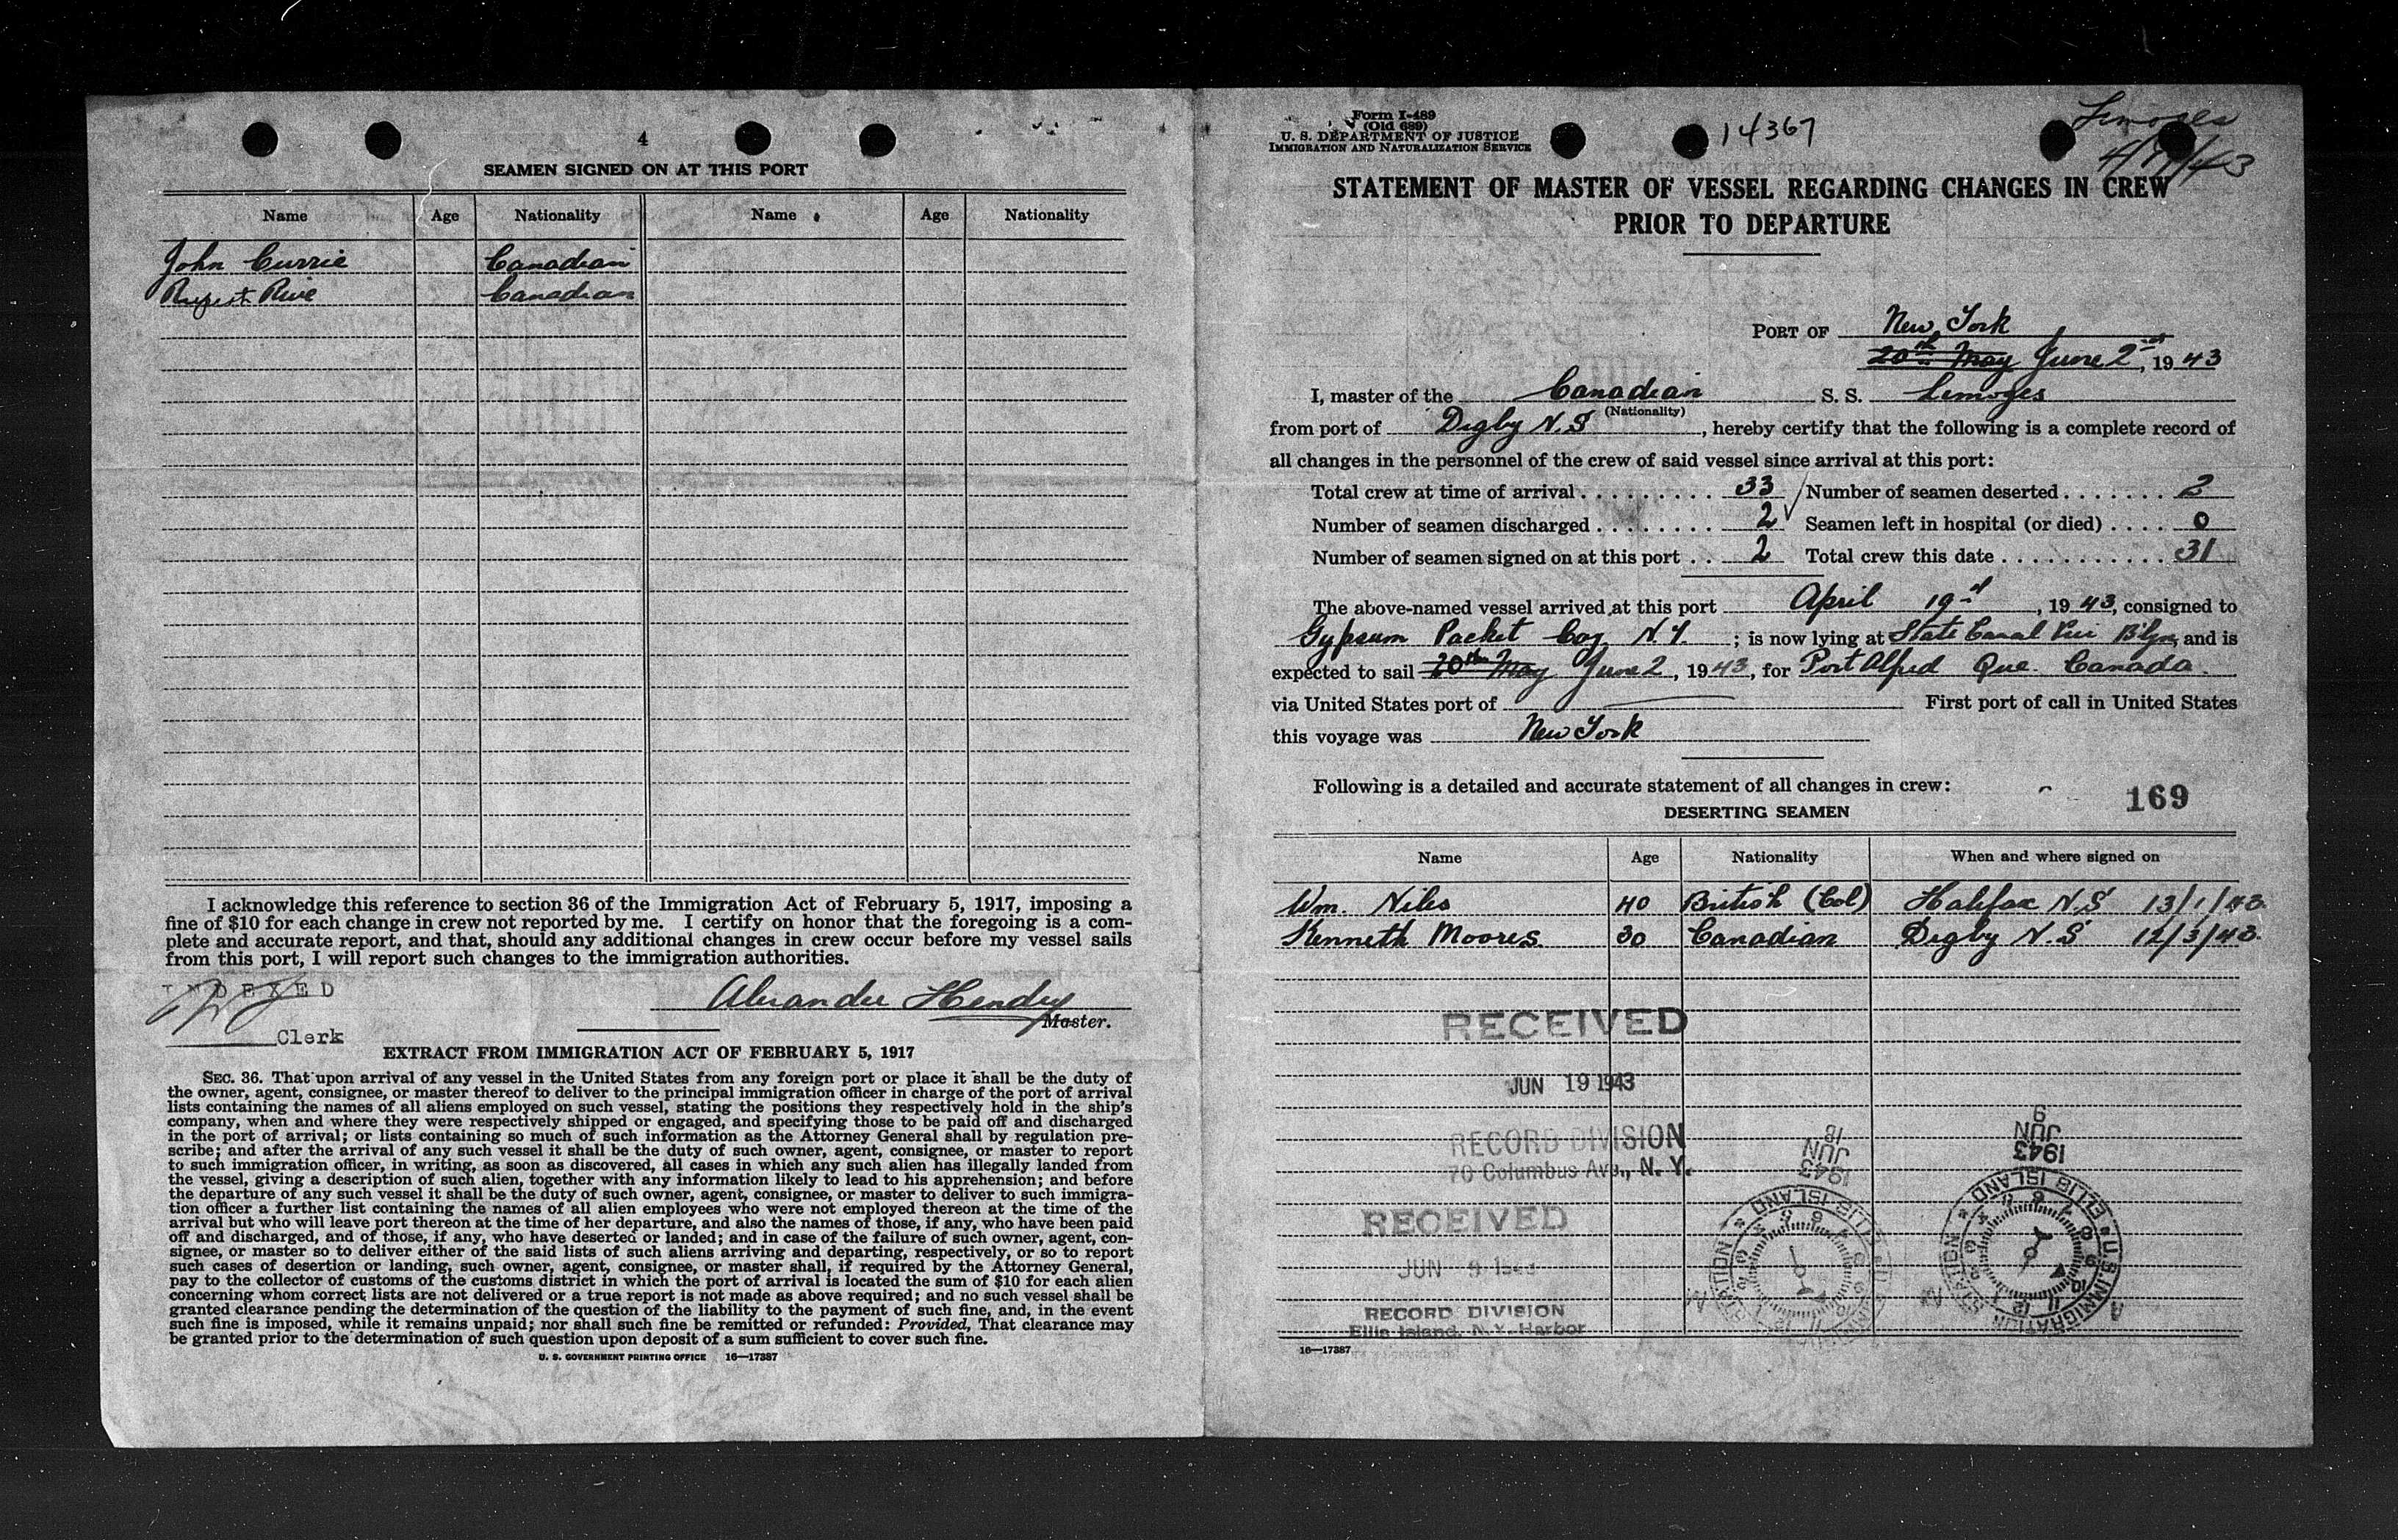 4
SEAMEN SIGNED ON AT THIS PORT
Name Age Nationality Name Age Nationality
John Currie Canadian
Canadian
I acknowledge this reference to section 36 of the Immigration Act of February 5, 1917, imposing a
fine of $10 for each change in crew not reported by me. I certify on honor that the foregoing is a com-
plete and accurate report, and that, should any additional changes in crew occur before my vessel sails
from this port, I will report such changes to the immigration authorities.
INDEXED
Alexander Hendry
Master.
Clerk
EXTRACT FROM IMMIGRATION ACT OF FEBRUARY 5, 1917
SEC. 36. That upon arrival of any vessel in the United States from any foreign port or place it shall be the duty of
the owner, agent, consignee, or master thereof to deliver to the principal immigration officer in charge of the port of arrival
lists containing the names of all aliens employed on such vessel, stating the positions they respectively hold in the ship's
company, when and where they were respectively shipped or engaged, and specifying those to be paid off and discharged
in the port of arrival; or lists containing so much of such information as the Attorney General shall by regulation pre-
scribe; and after the arrival of any such vessel it shall be the duty of such owner, agent, consignee, or master to report
to such immigration officer, in writing, as soon as discovered, all cases in which any such alien has illegally landed from
the vessel, giving a description of such alien, together with any information likely to lead to his apprehension; and before
the departure of any such vessel it shall be the duty of such owner, agent, consignee, or master to deliver to such immigra-
tion officer a further list containing the names of all alien employees who were not employed thereon at the time of the
arrival but who will leave port thereon at the time of her departure, and also the names of those, if any, who have been paid
off and discharged, and of those, if any, who have deserted or landed; and in case of the failure of such owner, agent, con-
signee, or master so to deliver either of the said lists of such aliens arriving and departing, respectively, or so to report
such cases of desertion or landing, such owner, agent, consignee, or master shall, if required by the Attorney General,
pay to the collector of customs of the customs district in which the port of arrival is located the sum of $10 for each alien
concerning whom correct lists are not delivered or a true report is not made as above required; and no such vessel shall be
granted clearance pending the determination of the question of the liability to the payment of such fine, and, in the event
such fine is imposed, while it remains unpaid; nor shall such fine be remitted or refunded: Provided, That clearance may
be granted prior to the determination of such question upon deposit of a sum sufficient to cover such fine.
U. S. GOVERNMENT PRINTING OFFICE 16—17387
Form I-489
(Old 689)
U. S. DEPARTMENT OF JUSTICE
IMMIGRATION AND NATURALIZATION SERVICE
14367
Limoges
STATEMENT OF MASTER OF VESSEL REGARDING CHANGES IN CREW
PRIOR TO DEPARTURE
PORT OF New York
20th May June 2nd, 1943
I, master of the Canadian S. S. Limoges
(Nationality)
from port of Digby N.S, hereby certify that the following is a complete record of
all changes in the personnel of the crew of said vessel since arrival at this port:
Total crew at time of arrival 33 Number of seamen deserted 2
Number of seamen discharged 2 Seamen left in hospital (or died) 0
Number of seamen signed on at this port 2 Total crew this date 31
The above-named vessel arrived at this port April 19, 1943, consigned to
Gypsum Packet Coy N.Y.; is now lying at State Canal Pier B'lyn, and is
expected to sail 20th May June 2, 1943, for Port Alfred Que. Canada.
via United States port of First port of call in United States
this voyage was New York
Following is a detailed and accurate statement of all changes in crew:
169
DESERTING SEAMEN
Name Age Nationality When and where signed on
Wm. Niles 40 British (Col) Halifax N.S 13/1/43.
Kenneth Moores. 30 Canadian Digby N.S 12/3/43.
RECEIVED
JUN 19 1943
RECORD DIVISION
70 Columbus Ave., N. Y.
18
JUN
1943
9
JUN
1943
U.S. IMMIGRATION STATION ELLIS ISLAND
U.S. IMMIGRATION STATION ELLIS ISLAND
RECEIVED
JUN 9 1943
RECORD DIVISION
Ellis Island, N.Y. Harbor
16—17387